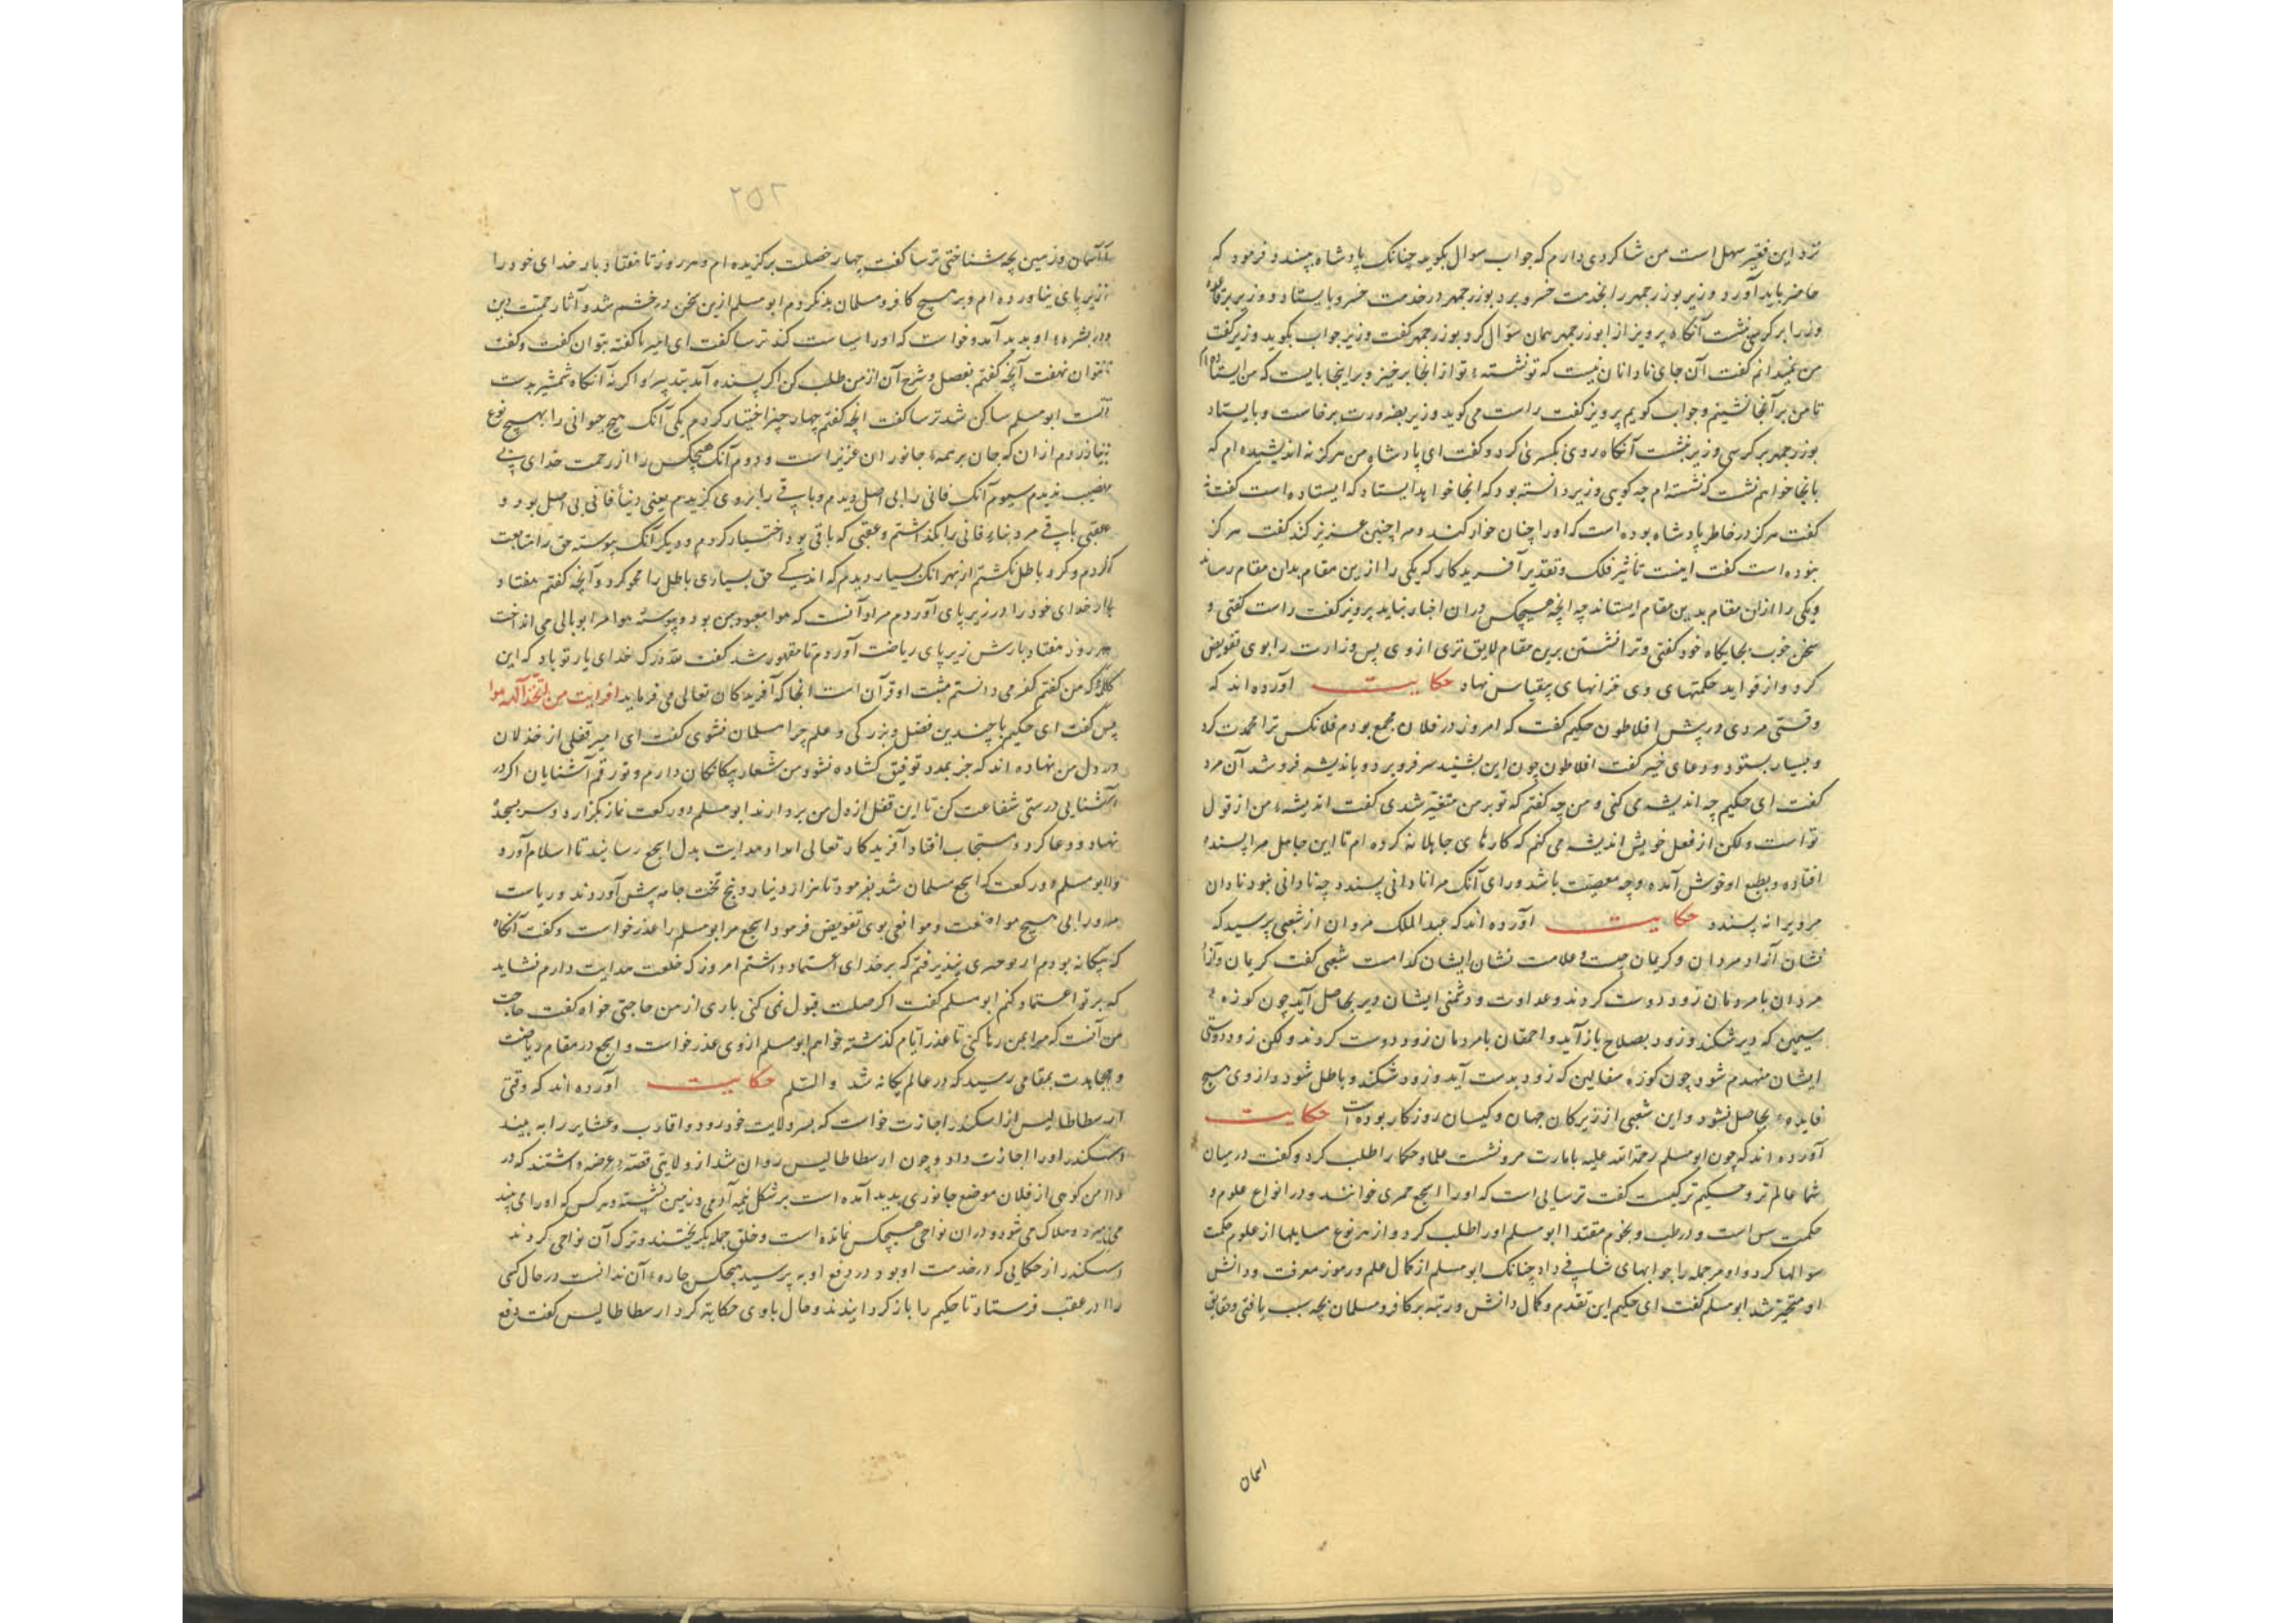 نزد این فقیر سهل است من شاکردی دارم که جواب سوال بکوید چنانک پادشاه بپسندد فرمود که
حاضر باید آورد وزیر بوزرجمهر را بخدمت خسرو برد بوزرجمهر در خدمت خسرو بایستاد و وزیر بر قاعده
وزرا بر کرسی نشست آنکاه پرویز از ابوزرجمهر همان سؤال کرد بوزرجمهر کفت وزیر جواب بکوید وزیر کفت
من نمیدانم کفت آن جای نادانان نیست که تو نشسته ء تو از انجا برخیز و بر اینجا بایست که من ایستاده ام
تا من بر آنجا نشینم و جواب کویم پرویز کفت راست می کوید وزیر بضرورت برخاست و بایستاد
بوزرجمهر بر کرسی وزیر نشست آنکاه روی بکسری کرد و کفت ای پادشاه من هرکز نه اندیشیده ام که
بانجا خواهم نشست که نشسته ام چه کویی وزیر دانسته بود که انجا خواهد ایستاد که ایستاده است کفت نه
کفت هرکز در خاطر پادشاه بوده است که اورا چنان خوار کند و مرا چنین عزیز کند کفت هرکز
نبوده است کفت اینست تأثیر فلک و تقدیر آفریدکار که یکی را ازین مقام بدان مقام رساند
و یکی را ازان مقام بدین مقام ایستاند چه انچه هیچکس دران اخبار نیاید پرویز کفت راست کفتی و
سخن خوب بجایکاه خود کفتی و ترا نشستن برین مقام لایق تری از وی پس وزارت را بوی تفویض
کرد و از فواید حکمتهای وی خزانهای بیقیاس نهاد حکایت آورده اند که
وقتی مردی در پیش افلاطون حکیم کفت که امروز در فلان مجمع بودم فلانکس ترا محمدت کرد
و بسیار بستود و دعای خیر کفت افلاطون چون این بشنید سر فرو برد و باندیشه فرو شد آن مرد
کفت ای حکیم چه اندیشه می کنی و من چه کفتم که تو بر من متغیّر شدی کفت اندیشهء من از قول
تو است ولکن از فعل خویش اندیشه می کنم که کارهای جاهلانه کرده ام تا این جاهل مرا پسنده
افتاده و بطبع او خوش آمده و چه مصیبت باشد ورای آنک مرا نادانی پسندد چه نادانی نبود نادان
مرد پیرانه پسندد حکایت آورده اند که عبدالملک مروان از شعبی پرسید که
نشان آزاد مردان و کریمان چیست و علامت نشان ایشان کدامست شعبی کفت کریمان و آزاد
مردان با مردمان زود دوست کردند و عداوت و دشمنی ایشان دیر بحاصل آید چون کوزهء
سیمین که دیر شکند و زود بصلاح باز آید و احمقان با مردمان زود دوست کردند ولکن زود دوستی
ایشان منهدم شود چون کوزه سفالین که زود بدست آید و زود شکند و باطل شود و از وی هیچ
فایدهء بحاصل نشود و این شعبی از زیرکان جهان و کیسان روزکار بوده است حکایت
آورده اند که چون ابو مسلم رحمة الله علیه بامارت مرو نشست علما و حکما را طلب کرد و کفت در میان
شما عالم تر و حکیم تر کیست کفت ترسایی است که اورا ابجع حمری خوانند و در انواع علوم و
حکمت بس است و در طب و نجوم مقتدا ابو مسلم اورا طلب کرد و از هر نوع مسایلها از علوم حکمت
سوالها کرد و او مر جمله را جوابهای شافی داد چنانک ابو مسلم از کمال علم و رموز معرفت و دانش
او متحیّر شد ابو مسلم کفت ای حکیم این تقدم و کمال دانش و رتبه بر کافر و مسلمان بچه سبب یافتی و حقایق
اسمان
۲۵۲
آسمان و زمین بچه شناختی ترسا کفت چهار خصلت برکزیده ام و هر روز تا هفتاد بار خدای خود را
زیر پای بیاورده ام و بر هیچ کافر و مسلمان بد نکردم ابو مسلم ازین سخن در خشم شد و آثار حمیّت دین
در بشرهء او پدید آمد و خواست که اورا سیاست کند ترسا کفت ای امیر ناکفته بتوان کفت و کفت
نتوان نهفت آنچه کفتم بفصل و شرح آن از من طلب کن اکر پسنده آید بپذیر و اکر نه آنکاه شمشیر بدست
تست ابو مسلم ساکن شد ترسا کفت انچه کفتم چهار چیز اختیار کردم یکی آنک هیچ حیوانی را بهیچ نوع
نیازردم ازان که جان بر همهء جانوران عزیز است و دوم آنک هیچکس را از رحمت خدای بی
نصیب ندیدم سیوم آنک فانی را بی اصل دیدم و باقی را بر وی کزیدم یعنی دنیاء فانی بی اصل بود و
عقبی باقی مر دنیاء فانی را بکذاشتم و عقبی که باقی بود اختیار کردم و دیکر آنک پیوسته حق را متابعت
کردم و کرد باطل نکشتم از بهر انک بسیار دیدم که اندکی حق بسیاری باطل را محو کرد و آنچه کفتم هفتاد
بار خدای خود را در زیر پای آوردم مراد آنست که هوا معبود من بود و پیوسته هوا مرا بوبالی می انداخت
هر روز هفتاد بارش زیر پای ریاضت آوردم تا مقهور شد کفت لله درک خدای یار تو باد که این
کلمه که من کفتم کفر می دانستم مثبت او قرآن است انجا که آفریدکان تعالی می فرماید افرایت من اتخذ الهه هوا
پس کفت ای حکیم با چندین فضل و بزرکی و علم چرا مسلمان نشوی کفت ای امیر قفلی از خذلان
در دل من نهاده اند که جز بمدد توفیق کشاده نشود من شعار بیکانکان دارم و تو رقم آشنایان اکر در
آشنایی درستی شفاعت کن تا این قفل از دل من بردارند ابو مسلم دو رکعت نماز بکزارد و سر بسجده
نهاد و دعا کرد و مستجاب افتاد آفریدکار تعالی امداد هدایت بدل ابجع رسانید تا اسلام آورد
و ابو مسلم                 که ابجع مسلمان شد بفرمود تا هزار دینار و پنج تخت جامه پیش آوردند و ریاست
     را بی هیچ            و موانعی بوی تفویض فرمود ابجع مر ابو مسلم را عذر خواست و کفت آنکاه
که بیکانه بودم از تو چیزی نپذیرفتم که بر خدای اعتماد داشتم امروز که خلعت هدایت دارم نشاید
که بر تو اعتماد کنم ابو مسلم کفت اکر صلت قبول نمی کنی باری از من حاجتی خواه کفت حاجت
من آنست که مرا بمن رها کنی تا عذر ایام کذشته خواهم ابو مسلم از وی عذر خواست و ابجع در مقام ریاضت
و مجاهدت بمقامی رسید که در عالم یکانه شد والسّلم حکایت آورده اند که وقتی
ارسطاطالیس از اسکندر اجازت خواست که بسر ولایت خود رود و اقارب و عشایر را به بیند
اسکندر اورا اجازت داد و چون ارسطاطالیس روان شد از ولایتی قصهء عرضه داشتند که در
دامن کوهی از فلان موضع جانوری پدید آمده است بر شکل نیمه آدمی و زمین نشسته و هرکس که اورا می بیند
می میرد و هلاک می شود و دران نواحی هیچکس نمانده است و خلق جمله بکریختند و ترک آن نواحی کردند
اسکندر از حکمایی که در خدمت او بود در دفع او به پرسید هیچکس چارهء آن ندانست در حال کسی
را در عقب فرستاد تا حکیم را باز کردانیدند و حال باوی حکایة کرد ارسطاطالیس کفت دفع